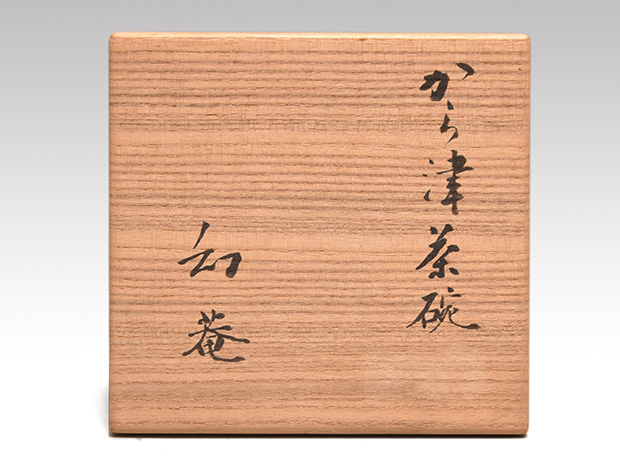 から津茶碗
幻菴